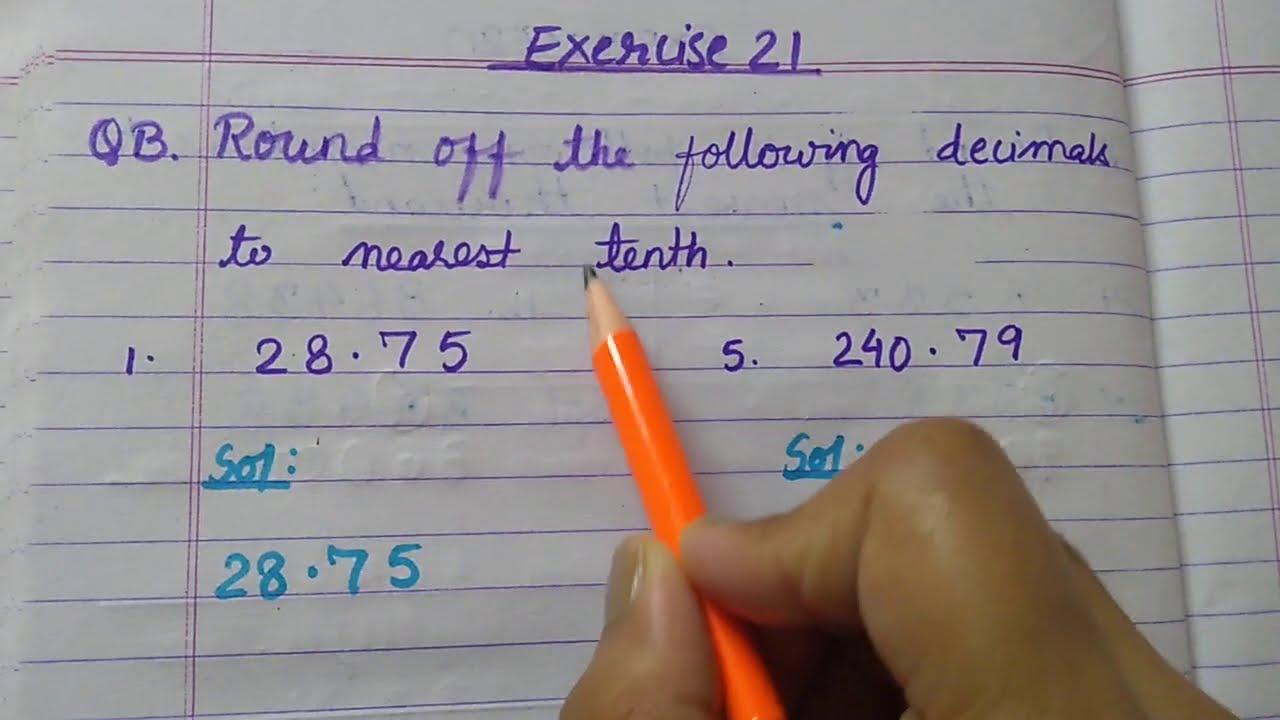 Exercise 21
QB. Round off the following decimals
to nearest tenth.
1. 28.75 5. 240.79
Sol: Sol:
28.75